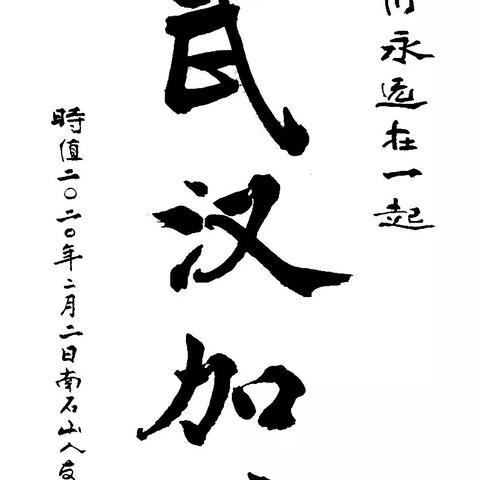 们永远在一起
武汉加
時值二〇二〇年二月二日南石山人